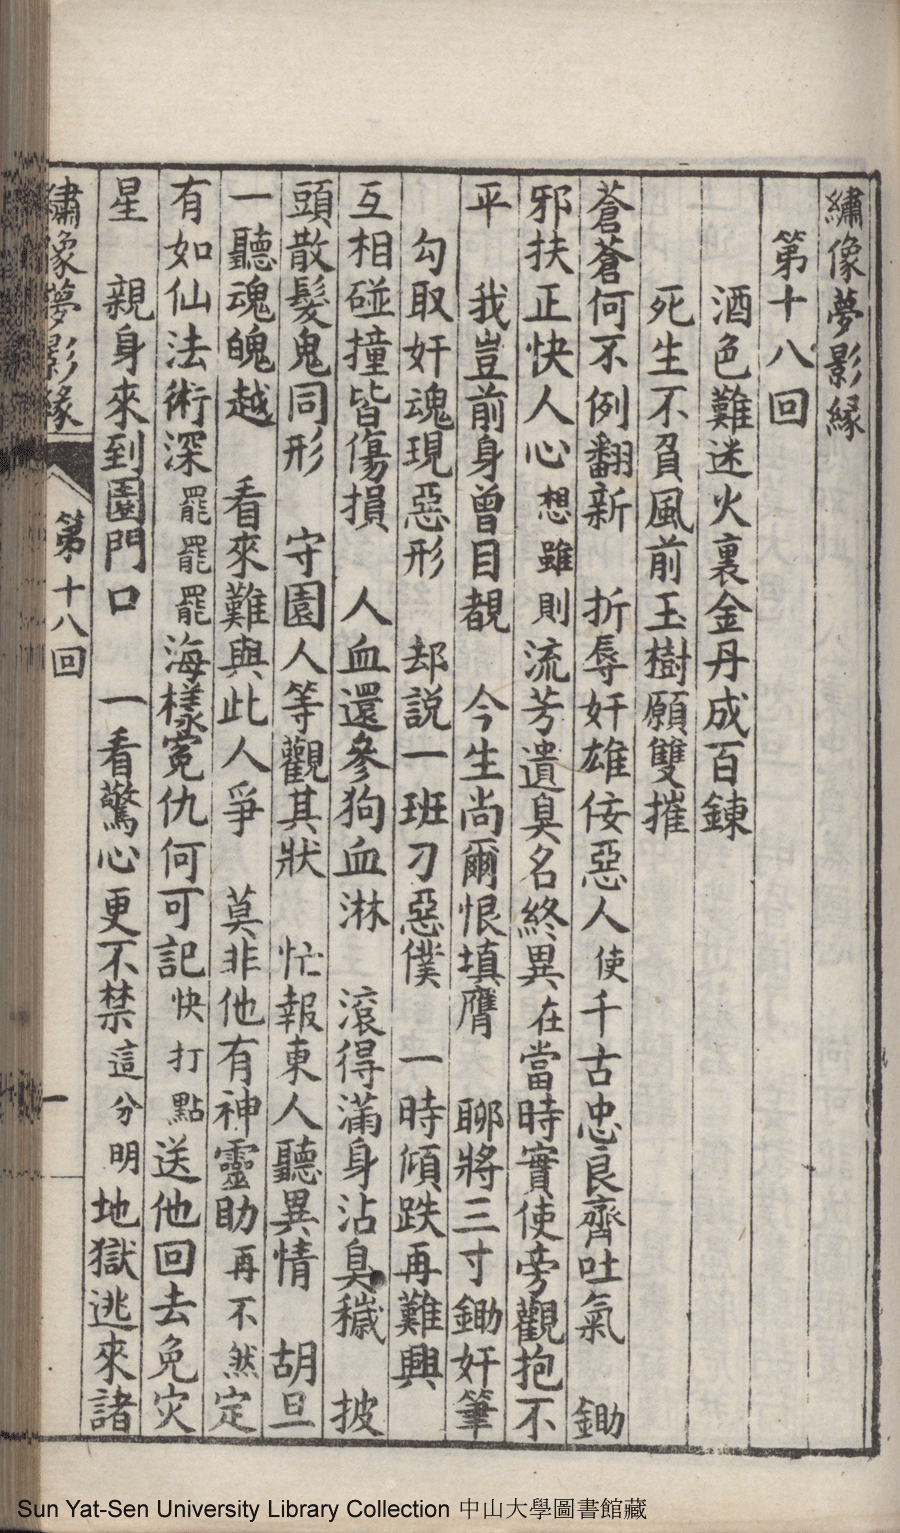 繡像夢影緣
第十八回
酒色難迷火裏金丹成百鍊
死生不負風前玉樹願雙摧
蒼蒼何不例翻新　折辱奸雄佞惡人　使千古忠良齊吐氣　鋤
邪扶正快人心　想雖則流芳遺臭名終異　在當時實使旁觀抱不
平　我豈前身曾目覩　今生尚爾恨填膺　聊將三寸鋤奸筆
勾取奸魂現惡形　却説一班刁惡僕　一時傾跌再難興
互相碰撞皆傷損　人血還參狗血淋　滾得滿身沾臭穢　披
頭散髮鬼同形　守園人等觀其狀　忙報東人聽異情　胡旦
一聽魂魄越　看來難與此人爭　莫非他有神靈助　再不然定
有如仙法術深　罷罷罷海樣寃仇何可記　快打點送他回去免灾
星　親身來到園門口　一看驚心更不禁　這分明地獄逃來諸
繡像夢影緣　第十八回　一
Sun Yat-Sen University Library Collection 中山大學圖書館藏